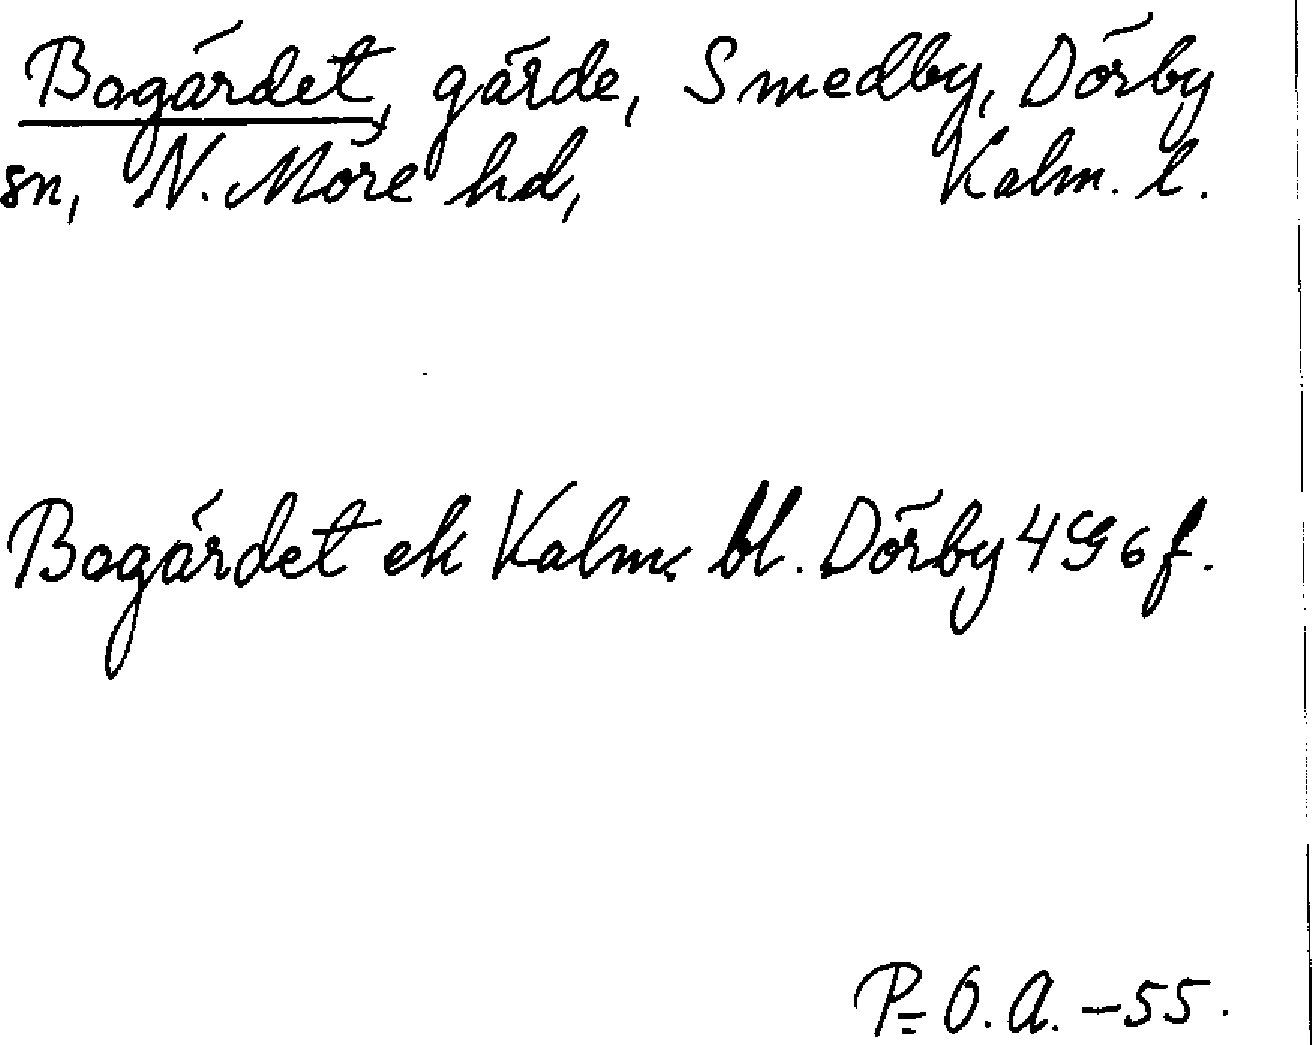 Bagärdet, gärde, Smedby, Dörby
sn, N. Möre hd, Kalm. l.
Bagärdet ek Kalm. bl. Dörby 496 f.
P=O.A. -55.